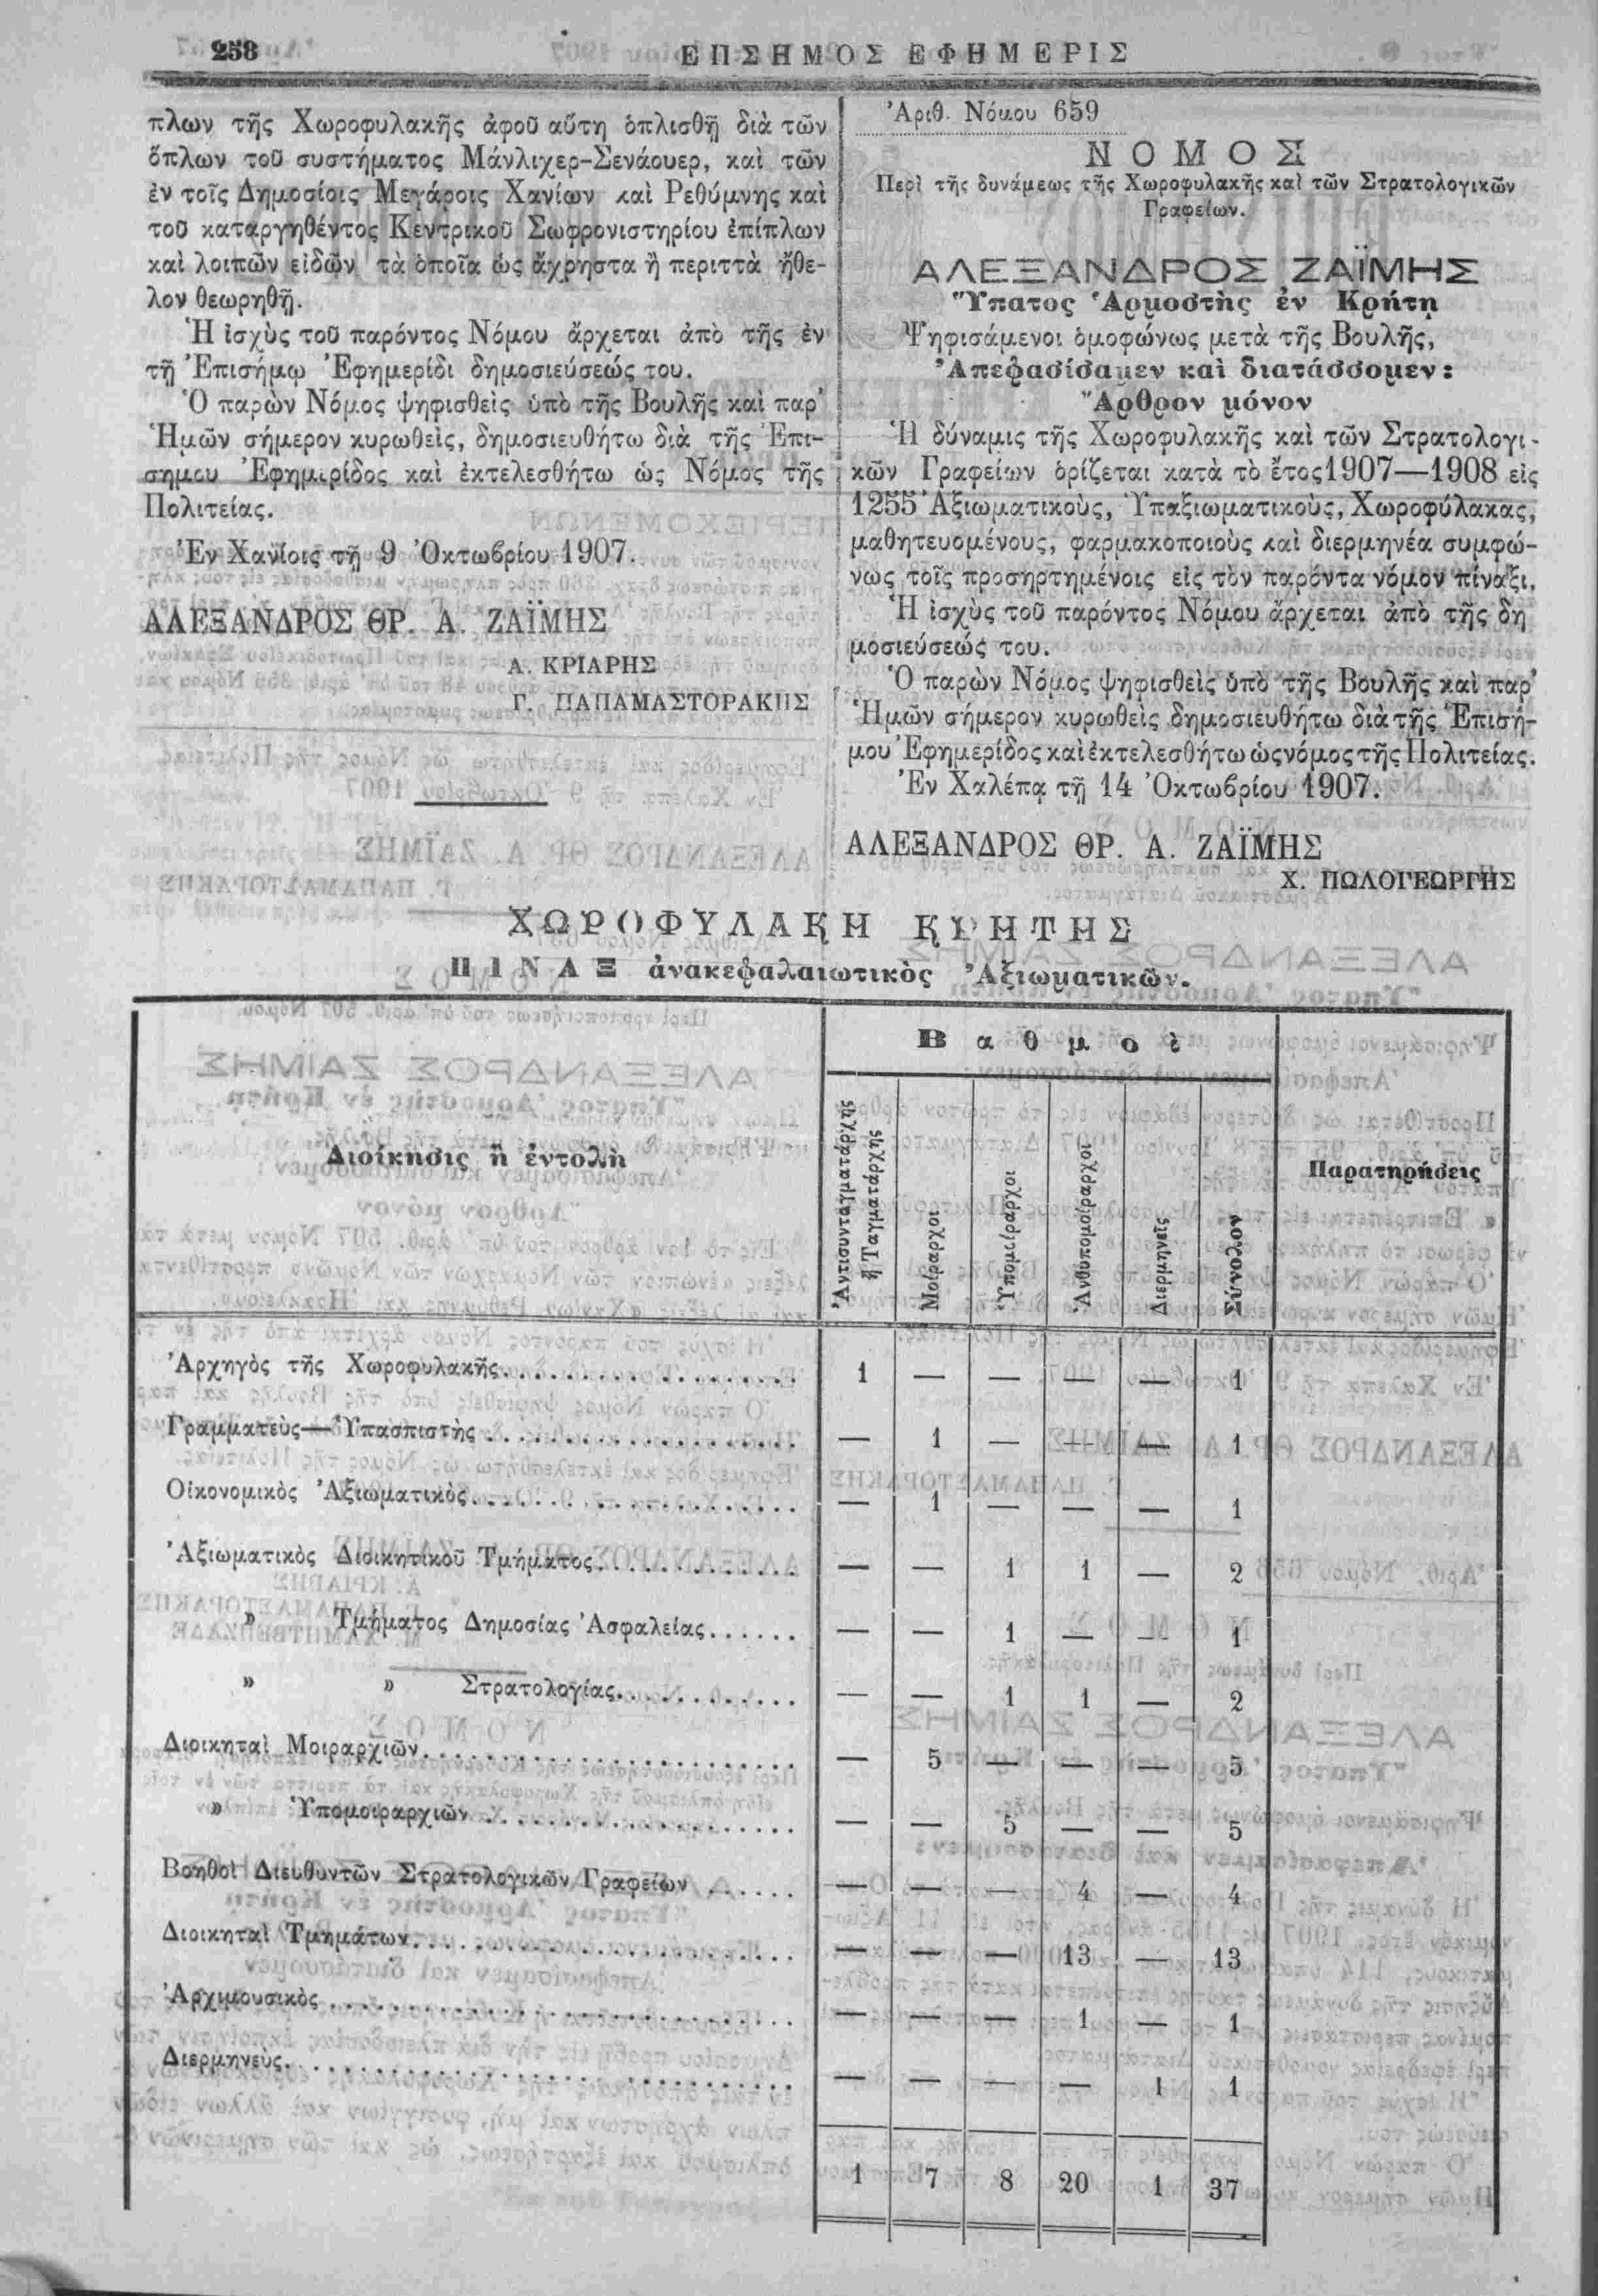 258
ΕΠΣΗΜΟΣ ΕΦΗΜΕΡΙΣ
πλων τῆς Χωροφυλακῆς ἀφοῦ αὕτη ὁπλισθῇ διὰ τῶν
ὅπλων τοῦ συστήματος Μάνλιχερ-Σενάουερ, καὶ τῶν
ἐν τοῖς Δημοσίοις Μεγάροις Χανίων καὶ Ρεθύμνης καὶ
τοῦ καταργηθέντος Κεντρικοῦ Σωφρονιστηρίου ἐπίπλων
καὶ λοιπῶν εἰδῶν τὰ ὁποῖα ὡς ἄχρηστα ἢ περιττὰ ἤθε-
λον θεωρηθῇ.
Ἡ ἰσχὺς τοῦ παρόντος Νόμου ἄρχεται ἀπὸ τῆς ἐν
τῇ Ἐπισήμῳ Ἐφημερίδι δημοσιεύσεώς του.
Ὁ παρὼν Νόμος ψηφισθεὶς ὑπὸ τῆς Βουλῆς καὶ παρ'
Ἡμῶν σήμερον κυρωθεὶς, δημοσιευθήτω διὰ τῆς Ἐπι-
σημου Ἐφημερίδος καὶ ἐκτελεσθήτω ὡς Νόμος τῆς
Πολιτείας.
Ἐν Χανίοις τῇ 9 Ὀκτωβρίου 1907.
ΑΛΕΞΑΝΔΡΟΣ ΘΡ. Α. ΖΑΪΜΗΣ
Α. ΚΡΙΑΡΗΣ
Γ. ΠΑΠΑΜΑΣΤΟΡΑΚΗΣ
Ἀριθ. Νόμου 659
ΝΟΜΟΣ
Περὶ τῆς δυνάμεως τῆς Χωροφυλακῆς καὶ τῶν Στρατολογικῶν
Γραφείων.
ΑΛΕΞΑΝΔΡΟΣ ΖΑΪΜΗΣ
Ὕπατος Ἁρμοστὴς ἐν Κρήτῃ
Ψηφισάμενοι ὁμοφώνως μετὰ τῆς Βουλῆς,
Ἀπεφασίσαμεν καὶ διατάσσομεν:
Ἄρθρον μόνον
Ἡ δύναμις τῆς Χωροφυλακῆς καὶ τῶν Στρατολογι-
κῶν Γραφείων ὁρίζεται κατὰ τὸ ἔτος 1907—1908 εἰς
1255 Ἀξιωματικοὺς, Ὑπαξιωματικοὺς, Χωροφύλακας,
μαθητευομένους, φαρμακοποιοὺς καὶ διερμηνέα συμφώ-
νως τοῖς προσηρτημένοις εἰς τὸν παρόντα νόμον πίναξι.
Ἡ ἰσχὺς τοῦ παρόντος Νόμου ἄρχεται ἀπὸ τῆς δη
μοσιεύσεώς του.
Ὁ παρὼν Νόμος ψηφισθεὶς ὑπὸ τῆς Βουλῆς καὶ παρ'
Ἡμῶν σήμερον κυρωθεὶς δημοσιευθήτω διὰ τῆς Ἐπισή-
μου Ἐφημερίδος καὶ ἐκτελεσθήτω ὡς νόμος τῆς Πολιτείας.
Ἐν Χαλέπᾳ τῇ 14 Ὀκτωβρίου 1907.
ΑΛΕΞΑΝΔΡΟΣ ΘΡ. Α. ΖΑΪΜΗΣ
Χ. ΠΩΛΟΓΕΩΡΓΗΣ
ΧΩΡΟΦΥΛΑΚΗ ΚΡΗΤΗΣ
ΠΙΝΑΞ ἀνακεφαλαιωτικὸς Ἀξιωματικῶν.
Διοίκησις ἢ ἐντολὴ
Βαθμοὶ
Ἀντισυνταγματάρχης
ἢ Ταγματάρχης
Μοίραρχοι
Ὑπομοίραρχοι
Ἀνθυπομοίραρχοι
Διερμηνεὺς
Σύνολον
Παρατηρήσεις
Ἀρχηγὸς τῆς Χωροφυλακῆς. 1 — — — — 1
Γραμματεὺς—Ὑπασπιστὴς — 1 — — — 1
Οἰκονομικὸς Ἀξιωματικὸς — 1 — — — 1
Ἀξιωματικὸς Διοικητικοῦ Τμήματος — — 1 1 — 2
» Τμήματος Δημοσίας Ἀσφαλείας — — 1 — — 1
» » Στρατολογίας — — 1 1 — 2
Διοικηταὶ Μοιραρχιῶν — 5 — — — 5
» Ὑπομοιραρχιῶν — — 5 — — 5
Βοηθοὶ Διευθυντῶν Στρατολογικῶν Γραφείων — — — 4 — 4
Διοικηταὶ Τμημάτων — — — 13 — 13
Ἀρχιμουσικὸς — — — 1 — 1
Διερμηνεὺς — — — — 1 1
1 7 8 20 1 37